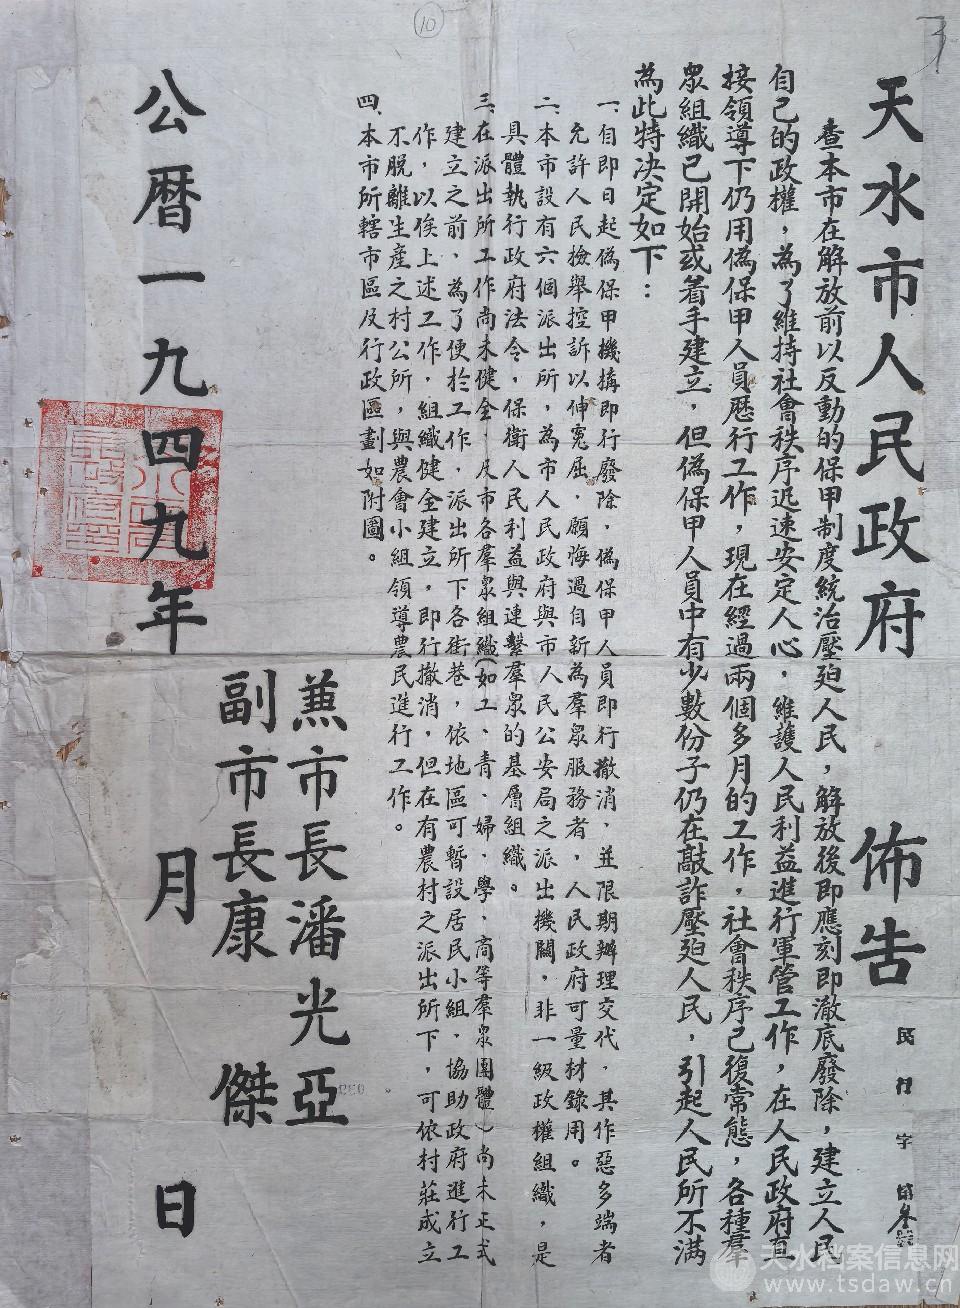 天水市人民政府 佈告
民行字第叁號
查本市在解放前以反動的保甲制度統治壓廹人民，解放後即應刻即澈底廢除，建立人民
自己的政權，為了維持社會秩序迅速安定人心，維護人民利益進行軍管工作，在人民政府直
接領導下仍用偽保甲人員歷行工作，現在經過兩個多月的工作，社會秩序已復常態，各種羣
眾組織已開始或着手建立，但偽保甲人員中有少數份子仍在敲詐壓廹人民，引起人民所不滿
為此特决定如下：
一、自即日起偽保甲機搆即行廢除，偽保甲人員即行撤消，並限期辦理交代，其作惡多端者
允許人民檢舉控訴以伸寃屈，願悔過自新為羣眾服務者，人民政府可量材錄用。
二、本市設有六個派出所，為市人民政府與市人民公安局之派出機關，非一級政權組織，是
具體執行政府法令，保衛人民利益與連繫羣眾的基層組織。
三、在派出所工作尚未健全，及市各羣眾組織（如工、青、婦、學、商等羣眾團體）尚未正式
建立之前，為了便於工作，派出所下各街巷，依地區可暫設居民小組，協助政府進行工
作，以俟上述工作，組織健全建立，即行撤消，但在有農村之派出所下，可依村莊成立
不脫離生產之村公所，與農會小組領導農民進行工作。
四、本市所轄市區及行政區劃如附圖。
兼市長潘光亞
副市長康傑
公曆一九四九年 月 日
10
天水档案信息网
www.tsdaw.cn